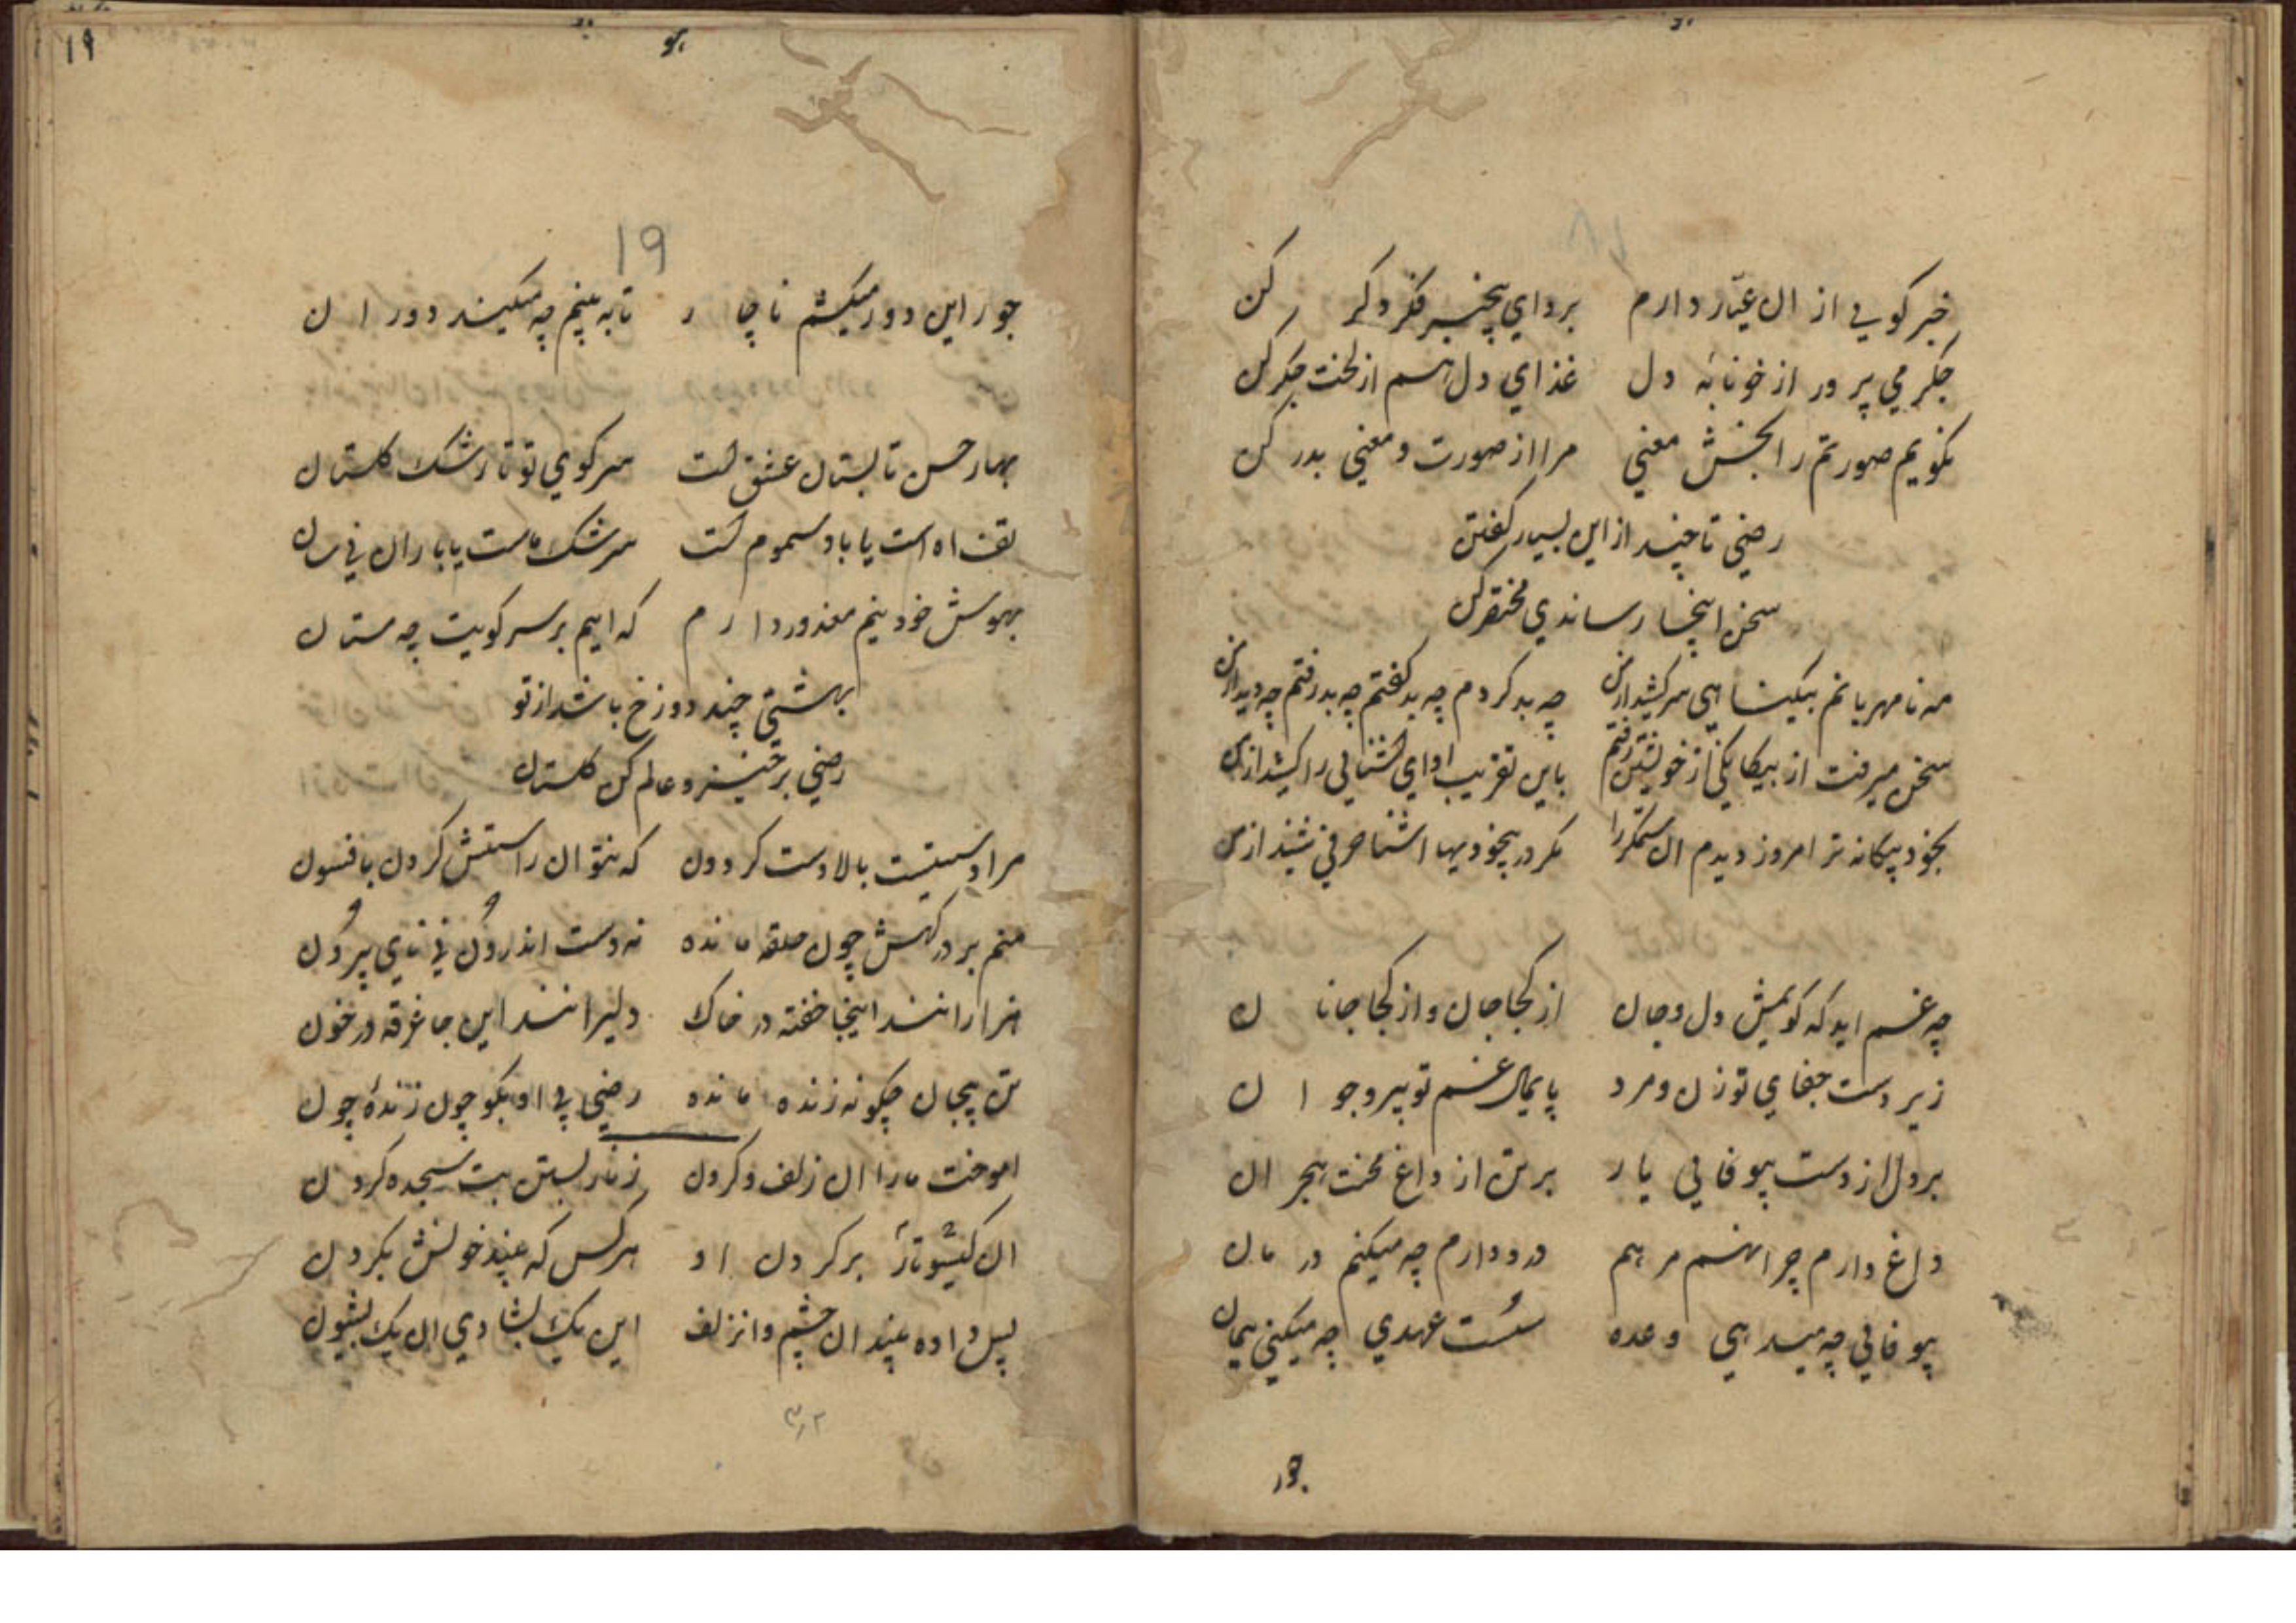 خبر کویی از ان عیّار دارم برو ای بیخبر فکر دگر کن
جکر می پرور از خونابه دل غذای دل هم از لخت جکر کن
نکویم صورتم را بخش معنی مرا از صورت و معنی بدر کن
رضی تا چند از این بسیار کفتن
سخن اینجا رساندی مختصر کن
مه نامهربانم بیکناهی سر کشید از من چه بد کردم چه بد کفتم چه بد رفتم چه دید از من
سخن میرفت از بیکانکی از خویشتن رفتم باین تقریب ادای اشنایی را کشید از من
بخود بیکانه تر امروز دیدم ان ستمکر را مکر در بیخودیها اشنا حرفی شنید از من
چه غم اید که کویمش دل و جان از کجا جان و از کجا جانان
زیر دست جفای تو زن و مرد پایمال غم تو پیر و جوان
بر دل از دست بیوفایی یار بر تن از داغ محنت هجران
داغ دارم چرا نهم مرهم درد دارم چه میکنم درمان
بیوفایی چه میدهی وعده سست عهدی چه میکنی پیمان
جور
۱۹
19
جور این دور میکشم ناچار تا به بینم چه میکند دوران
بهار حسن تابستان عشق است سر کوی تو تا رشک کلستان
تف اه است یا باد سموم است سرشک ماست یا باران نیسان
بهوش خود نیم معذور دارم که ایم بر سر کویت چه مستان
بهشتی چند دوزخ باشد از تو
رضی برخیز و عالم کن کلستان
مرا دستیست بالا دست کردون که نتوان راستش کردن بافسون
منم بر درکهش چون حلقه مانده نه دست اندرون نی پای بیرون
هزارانند اینجا خفته در خاک دلیرانند این جا غرقه در خون
تن بیجان چکونه زنده مانده رضی بی او بکو چون زندۀ چون
اموخت ما را ان زلف و کردن زنار بستن بت سجده کردن
ان کیسوتار بر کردن او هر کس که بیند خونش بکردن
بس داده بیند ان چشم وانزلف این یک بشادی ان یک بشیون
۳۲